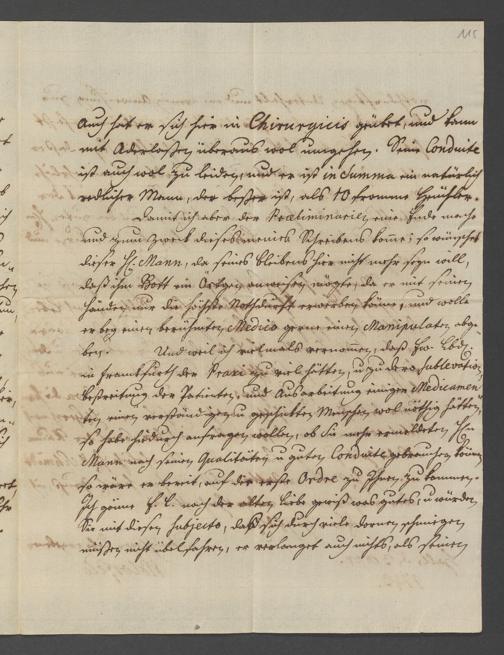 115
Auch hat er sich hier in Chirurgicis geübet, und kann
mit Aderlaßen überaus wol umgehen. Sein Conduite
ist auch wol zu leiden, und er ist in Summa ein natürlich
redlicher Mann, der beßer ist, als 10 fromme Heuchler.
Damit ich aber der Præliminarien eine Ende mache
und zum Zweck dieses meines Schreibens komme; so wünschet
dieser H. Mann, da seines bleibens hier nicht mehr seyn will,
daß ihm Gott ein Örtgen anweisen mögte, da er mit seinen
Händen nur die höchste Nothdurft erwerben könne, und wolle
er bey einem berühmten Medico gerne einen Manipulator abge-
ben. Und weil ich vielmals vernommen, daß Ew.
in Franckfurth der Praxi zu viel hätten, u. zu dero Sublevation
Bestreitung der Patienten, und Ausarbeitung einiger Medicamen-
ten einen verständigen u. geschickten Menschen wol nöthig hätten,
so habe hiedurch anfragen wollen, ob Sie mehr ermelteten H.
Mann nach seinen Qualitäten u. guten Conduite gebrauchen können
so wäre er bereit, auf die erste Ordre zu Ihnen zu kommen.
Ich gönne E. L. nach der alten Liebe gewiß was gutes, u. würden
Sie mit diesem Subjecto, daß sich durch viele dornen schmiegen
müßen nicht übel fahren, er verlanget auch nichts, als seinen